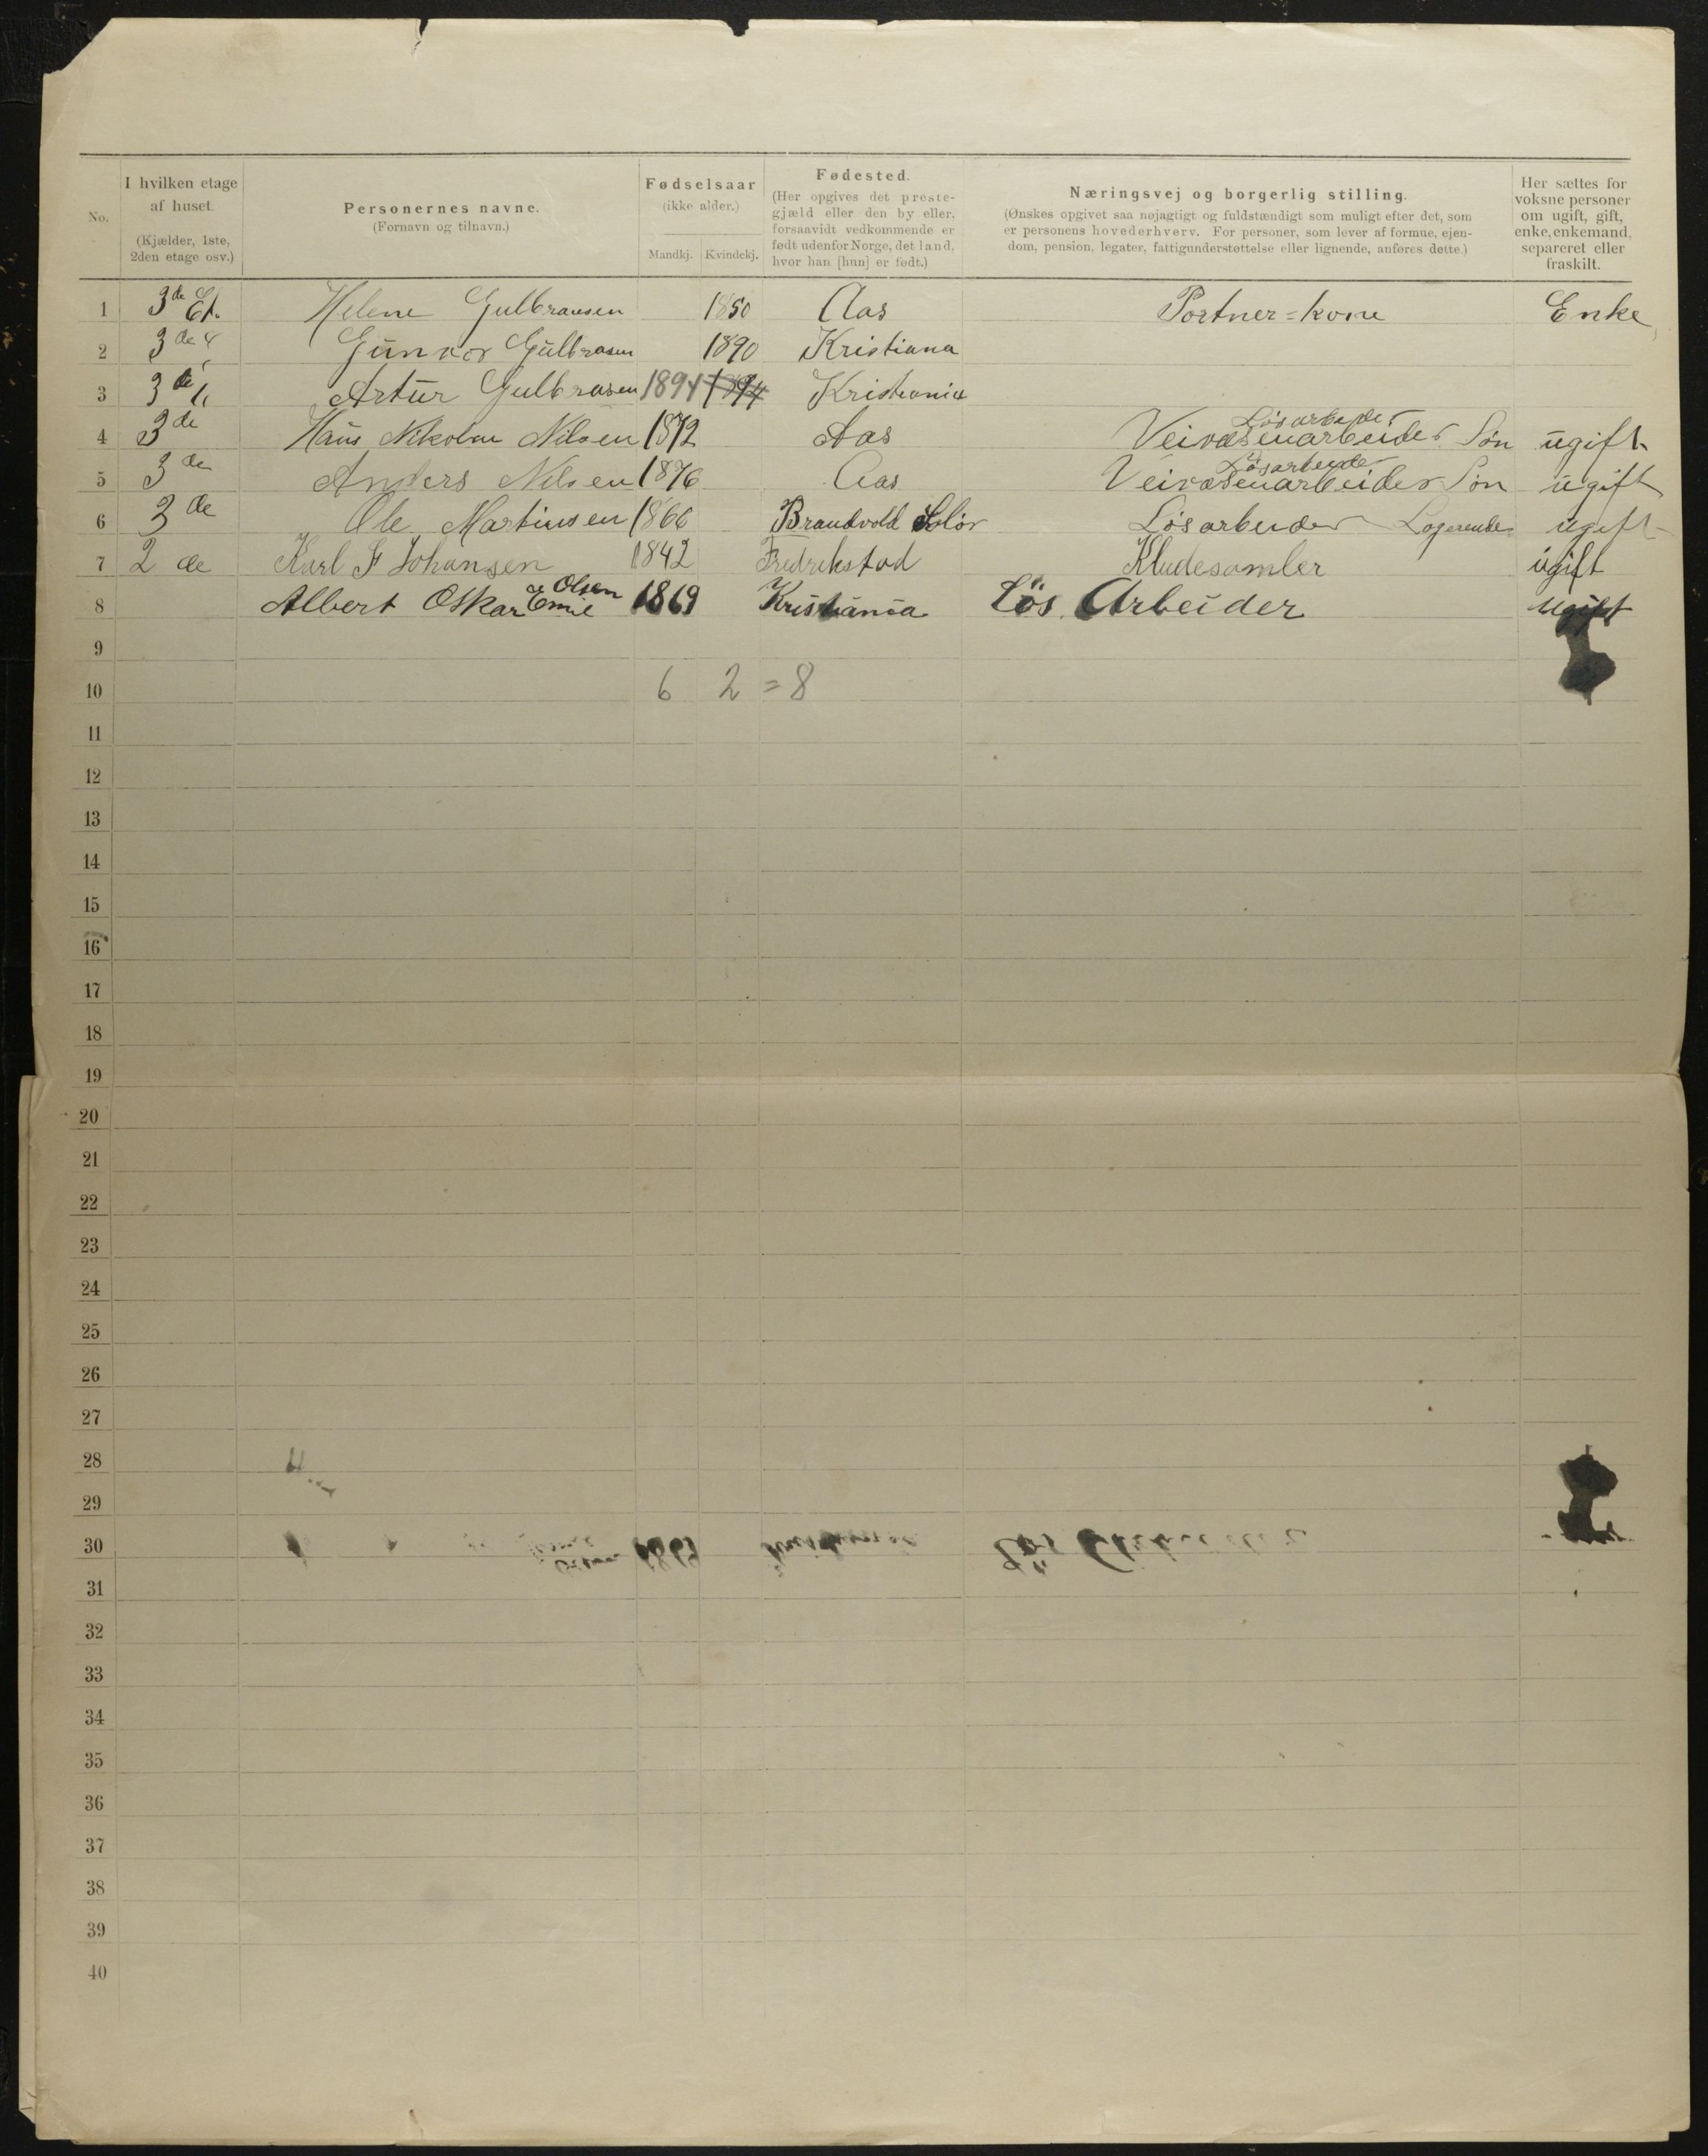 No. | I hvilken etage af huset. (Kjælder, 1ste, 2den etage osv.) | Personernes navne. (Fornavn og tilnavn.) | Fødselsaar (ikke alder.) Mandkj. Kvindekj. | Fødested. (Her opgives det prestegjæld eller den by eller, forsaavidt vedkommende er født udenfor Norge, det land, hvor han [hun] er født.) | Næringsvej og borgerlig stilling. (Ønskes opgivet saa nøjagtigt og fuldstændigt som muligt efter det, som er personens hovederhverv. For personer, som lever af formue, ejendom, pension, legater, fattigunderstøttelse eller lignende, anføres dette.) | Her sættes for voksne personer om ugift, gift, enke, enkemand, separeret eller fraskilt.
1 3de Et. Helene Gulbransen 1850 Aas Portner=kone Enke
2 3de Gunvor Gulbrasen 1890 Kristiana
3 3de Artur Gulbrasen 1894 1894 Kristiania
4 3de Hans Nikolai Nilsen 1872 Aas Løsarbeide Veivæsenarbeider Søn ugift
5 3de Anders Nilsen 1876 Aas Løsarbeide Veivæsenarbeider Søn ugift
6 3de Ole Martinsen 1866 Brandvold Solør Løsarbeider Logerende ugift
7 2de Karl F Johansen 1842 Fredrekstad Kludesamler ugift
8 Albert Oskar Olsen 1869 Kristiania Løs Arbeider ugift
9
10 6 2 = 8
11
12
13
14
15
16
17
18
19
20
21
22
23
24
25
26
27
28
29
30
31
32
33
34
35
36
37
38
39
40